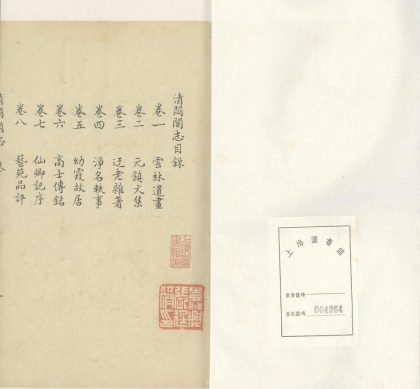 清閟閣志目錄
卷一　雲林遺畫
卷二　元鎮文集
卷三　迂老雜著
卷四　淨名軼事
卷五　幼霞故居
卷六　高士傳銘
卷七　仙鄉記序
卷八　藝苑品評
清閟閣志　卷
上海圖書館
004264